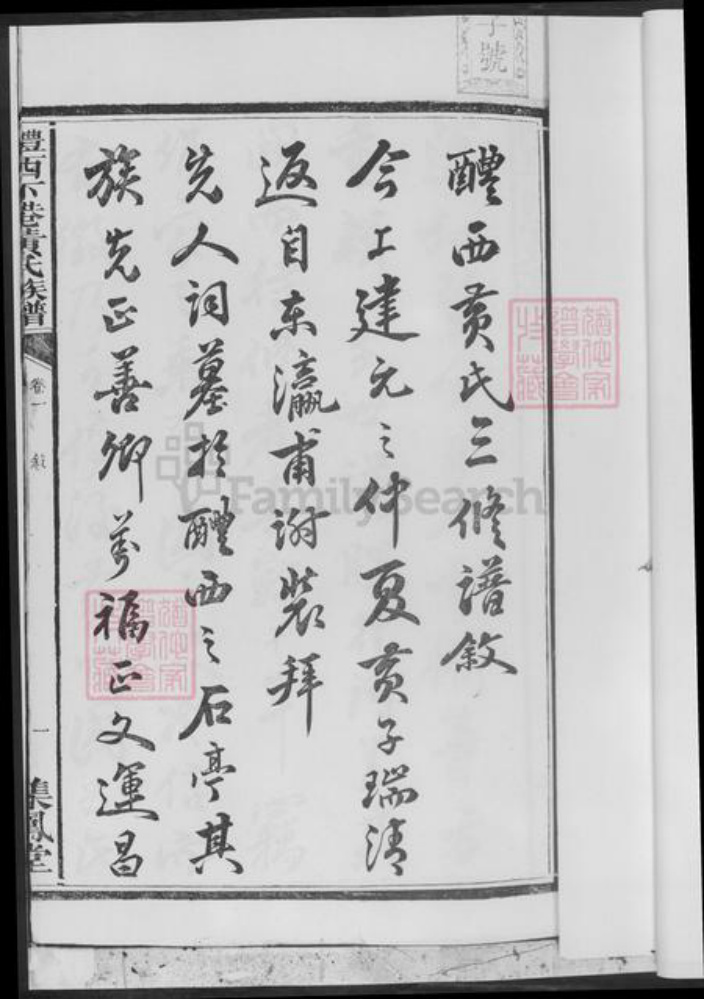 醴西黃氏三修譜敘
今上建元之仲夏黃子瑞清
返自東瀛甫謝裝拜
先人祠墓於醴西之石亭其
族先正善卿萬福正文運昌
醴西下巷黃氏族譜
卷一
敘
一
集鳳堂
號
FamilySearch